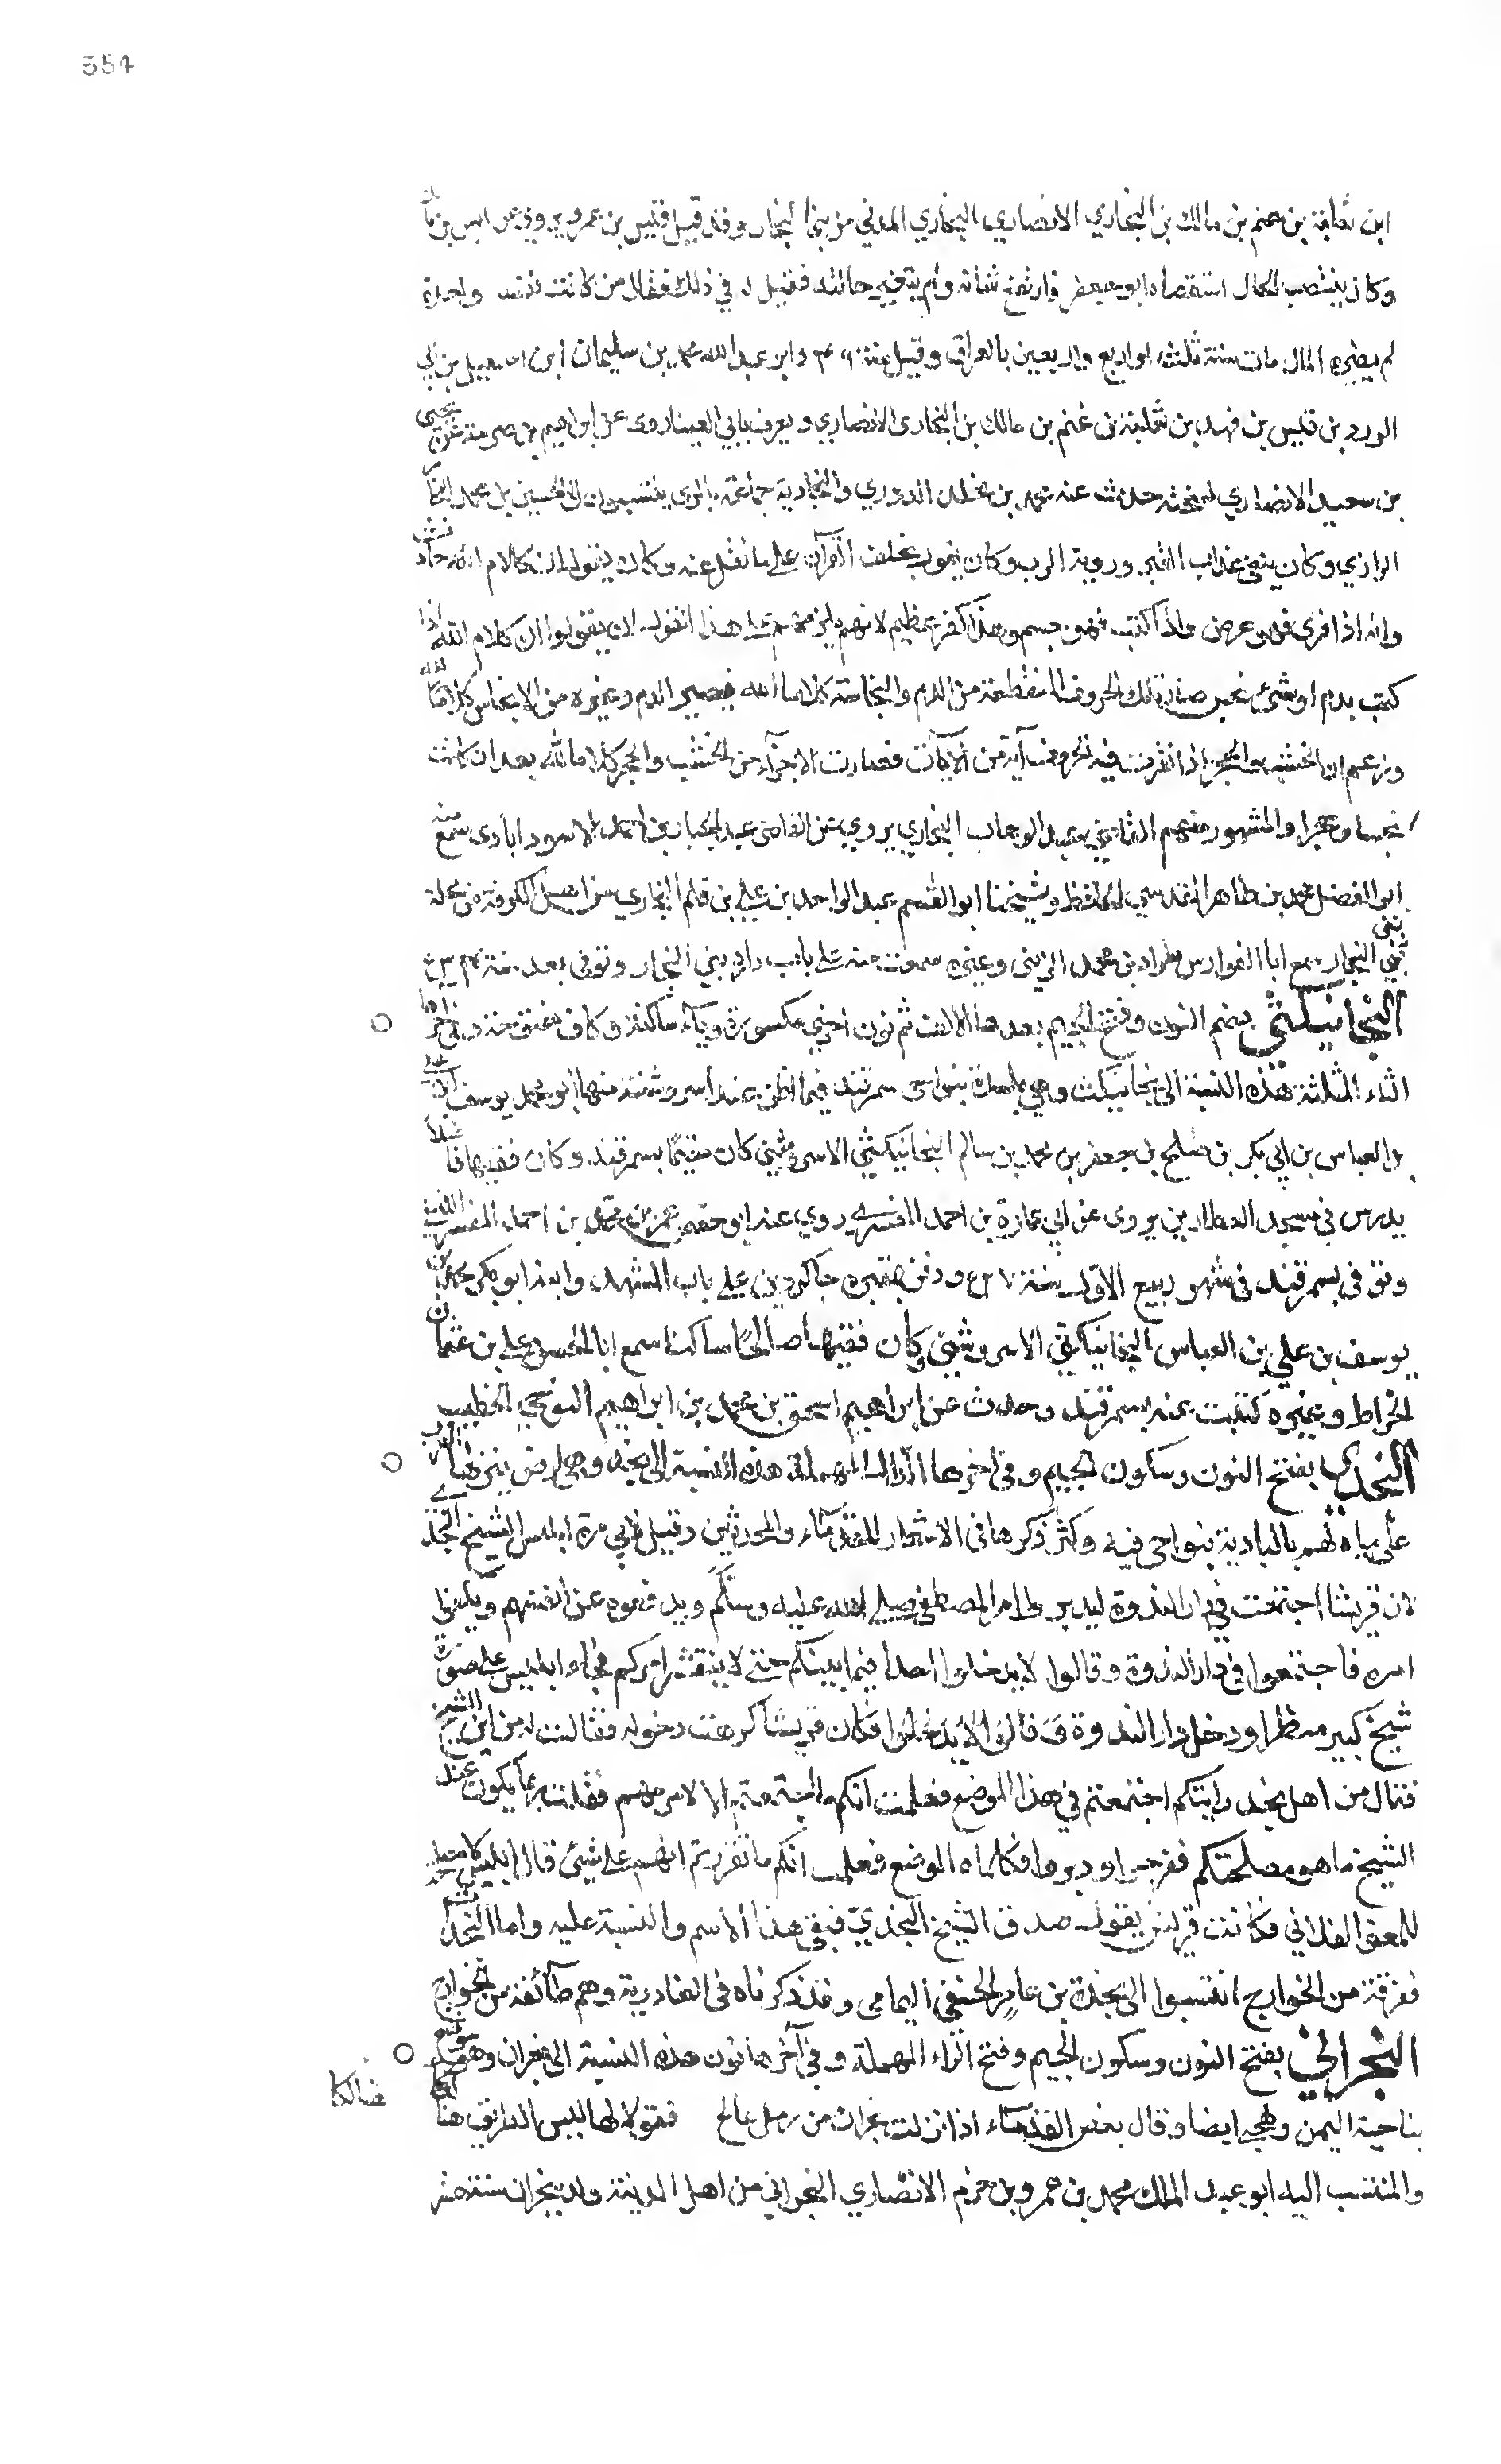 554
ابن ثعلبة بن غنم بن مالك بن النجاري الانصاري النجاري المدني من بني النجار وقد قيل قيس بن عمرو يروي عن انس بن مالك
وكان ابو جعفر شانه فقيل له في ذلك فقال من كانت نفسه واحدة
لم يضره المال مات سنة ثلث او اربع واربعين بالعراق وقيل سنة ابو عبد الله محمد بن سليمان ابن اسمعيل بن ابي
الورد بن قيس بن فهد بن ثعلبة بن غنم بن مالك بن النجاري الانصاري ويعرف بابي العينا روى عن ابراهيم بن صرمة عن يحيى
بن سعيد الانصاري نسخة حدث عنه محمد بن مخلد الدوري والنجارية جماعة بالري ينتسبون الى الحسين بن محمد النجار
الرازي وكان ينفي عذاب القبر وروية الرب وكان يقول بخلق القرآن على ما نقل عنه وكان يقول ان كلام الله حادث
وانه اذا قرئ فهو عرض واذا كتب فهو جسم وهذا كفر عظيم لانهم يلزمهم على هذا القول ان يقولوا ان كلام الله اذا
كتب بدم او بشئ نجس صارت تلك الحروف المنقطعة من الدم والنجاسة كلاما لله فيصير الدم وغيره من الانجاس كلاما لله
وزعم ان الخشب والحجر اذا نقرت فيه نحروف آية من الآيات فصارت الاجزآء من الخشب والحجر كلاما لله بعد ان كانت
خشبا وحجرا والمشهور منهم القاضي عبد الوهاب النجاري يروي عن القاضي عبد الجبار بن احمد الاسود ابادي سمع منه
ابو الفضل محمد بن طاهر المقدسي الحافظ وشيخنا ابو القسم عبد الواحد بن علي بن قلم النجاري من اهل الكوفة من محلة
بني النجار سمع ابا الفوارس طراد بن محمد الزينبي وغيره سمعت منه على باب داره ببني النجار وتوفي بعد سنة
النجانيكثي بضم النون وفتح الجيم بعدها الالف ثم نون اخرى مكسورة ويآء ساكنة وكاف مفتوحة وفي آخرها
الثاء المثلثة هذه النسبة الى نجانيكث وهي بلدة بنواحي سمرقند فيما اظن عند اسروشنة منها ابو محمد يوسف ابن علي
بن العباس بن ابي بكر بن صلح بن جعفر بن محمد بن سالم النجانيكثي الاسروشني كان مقيما بسمرقند وكان فقيها فاضلا
يدرس في مسجد العطارين يروى عن ابي عمارة بن احمد المفسر روى عنه ابو حفص عمر بن محمد بن احمد النسفي
وتوفى بسمرقند في شهر ربيع الاول سنة ودفن بمقبره جاكرديزه على باب المشهد وابنه ابو بكر محمد بن
يوسف بن علي بن العباس النجانيكثي الاسروشني وكان فقيها صالحا ساكنا سمع ابا الحسن علي بن عثمان
الخراط وغيره كتبت عنه بسمرقند وحدث عن ابراهيم اسحق بن محمد بن ابراهيم النوحي الخطيب
النجدي بفتح النون وسكون الجيم وفي اخرها الدال المهملة هذه النسبة الى نجد وهي ارض ينزلها العرب
على مياه لهم بالبادية بنواحي فيد وكثر ذكرها في الاشعار للقدمآء والمحدثين وقيل لابي مرة ابليس الشيخ النجدي
لان قريشا اجتمعت في دار الندوة ليدبروا امر المصطفى صلى الله عليه وسلم ويدفعوه عن انفسهم ويكفوا
امره فاجتمعوا في دار الندوة وقالوا لا يدخلوا احدا فيما بينكم حتى لا ينتشر امركم فجاء ابليس على صورة
شيخ كبير منظرا ودخل دار الندوة وقالوا لا يدخلوا فكان قريشا كرهت دخوله فقالت له من اين الشيخ
فقال من اهل نجد رايتكم اجتمعتم في هذا الموضع فعلمت انكم ما اجتمعتم الا لامر مهم فقلت ربما يكون عند
الشيخ ما هو مصلحتكم الموضع فعلمت انكم ما تقررتم على شئ قال ابليس
للمعنى الفلاني فكانت قريش يقول صدق الشيخ النجدي فبقي هذا الاسم والنسبة عليه واما النجدية
ففرقة من الخوارج انتسبوا الى نجدة بن عامر الحنفي اليمامي وقد ذكرناه في العاذرية وهم طآئفة من الخوارج
النجراني بفتح النون وسكون الجيم وفتح الراء المهملة وفي آخرها نون هذه النسبة الى نجران وهو موضع
بناحية اليمن وهجر ايضا وقال بعض القدمآء اذا نزلت نجران من رمل عالج فقولا لها ليس الطريق هنالكا
والمنتسب اليه ابو عبد الملك محمد بن عمرو بن حزم الانصاري النجراني من اهل المدينة ولد بنجران سنة عشر